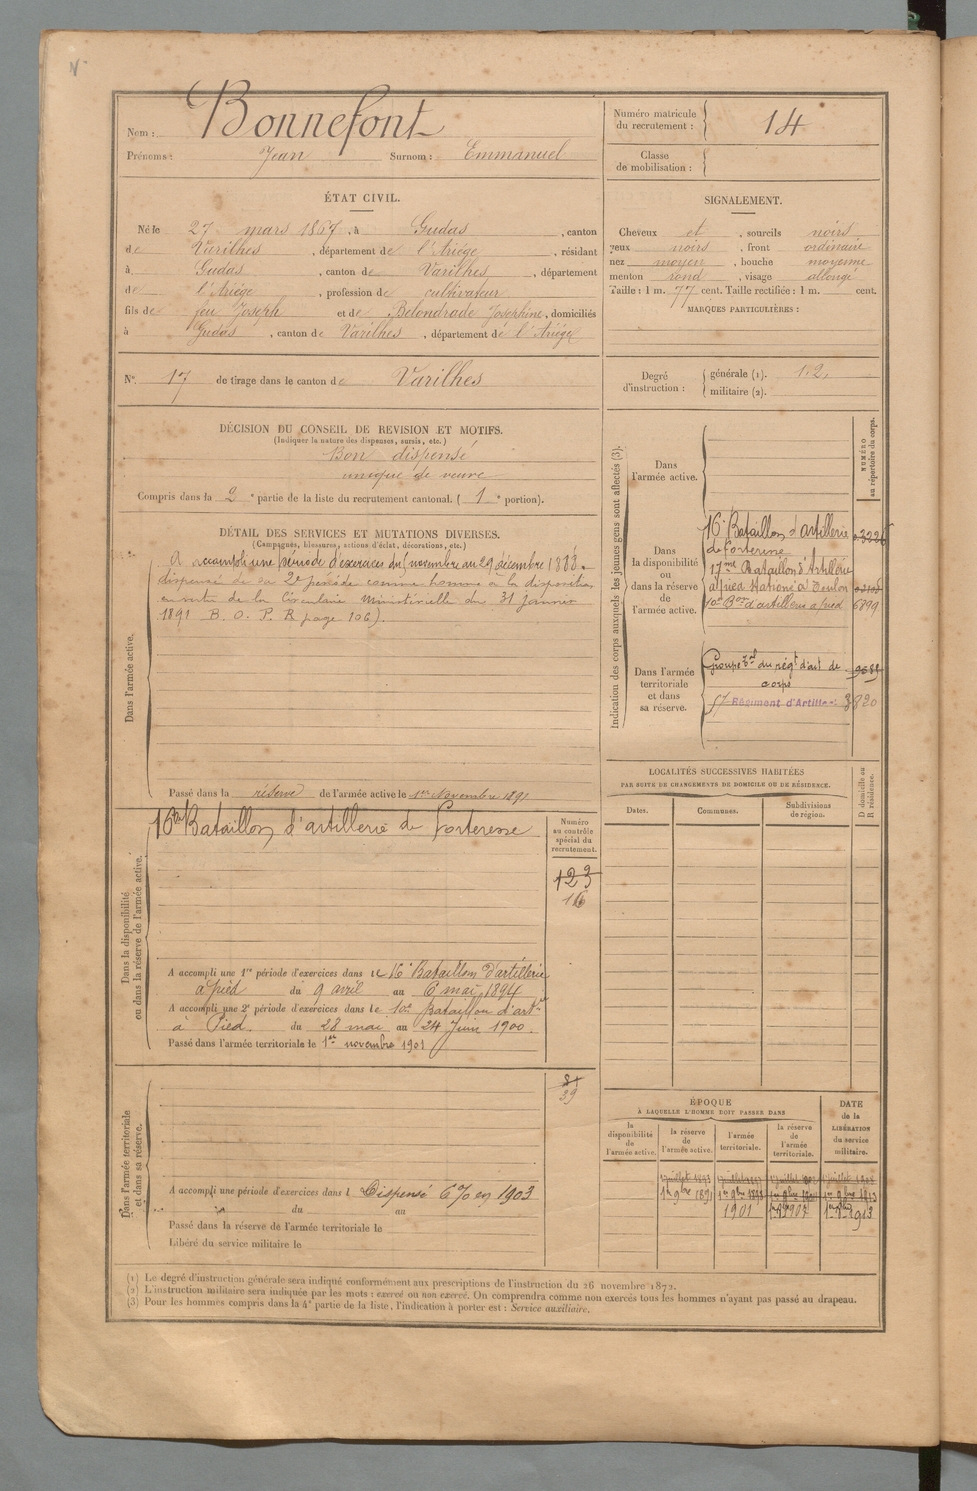 Nom : Bonnefont
Prénoms : Jean Surnom : Emmanuel
Numéro matricule du recrutement : 14
Classe de mobilisation :
ÉTAT CIVIL.
Né le 27 mars 1867, à Gudas, canton
de Varilhes, département de l'Ariège, résidant
à Gudas, canton de Varilhes, département
de l'Ariège, profession de cultivateur
fils de feu Joseph et de Belondrade Joséphine, domiciliés
à Gudas, canton de Varilhes, département de l'Ariège
N° 17 de tirage dans le canton de Varilhes
SIGNALEMENT.
Cheveux et , sourcils noirs
yeux noirs , front ordinaire
nez moyen , bouche moyenne
menton rond , visage allongé
Taille : 1 m. 77 cent. Taille rectifiée : 1 m. cent.
MARQUES PARTICULIÈRES :
Degré d'instruction :
générale (1). 1.2.
militaire (2).
DÉCISION DU CONSEIL DE REVISION ET MOTIFS.
(Indiquer la nature des dispenses, sursis, etc.)
Bon dispensé
unique de veuve
Compris dans la 2e partie de la liste du recrutement cantonal. ( 1e portion).
DÉTAIL DES SERVICES ET MUTATIONS DIVERSES.
(Campagnes, blessures, actions d'éclat, décorations, etc.)
Dans l'armée active.
A accompli une période d'exercice du novembre au 29 décembre 1888.
dispensé de sa 2e période comme homme à la disposition
en vertu de la Circulaire Ministérielle du 31 Janvier
1891 B. O. P. R page 106).
Passé dans la réserve de l'armée active le 1er Novembre 1891
Indication des corps auxquels les jeunes gens sont affectés (3).
NUMÉRO au répertoire du corps.
Dans l'armée active.
Dans la disponibilité ou dans la réserve de l'armée active.
16e Bataillon d'artillerie
de forteresse
17me Bataillon d'Artillerie
à pied stationé à Toulon
10e Bon d'artillerie à pied
6899
Dans l'armée territoriale et dans sa réserve.
Groupe du régt d'art de
corps
17 Régiment d'Artillerie 3820
LOCALITÉS SUCCESSIVES HABITÉES
PAR SUITE DE CHANGEMENTS DE DOMICILE OU DE RÉSIDENCE.
Dates.
Communes.
Subdivisions de région.
D domicile ou R résidence.
Dans la disponibilité ou dans la réserve de l'armée active.
16e Bataillon d'artillerie de forteresse
Numéro au contrôle spécial du recrutement.
123
116
A accompli une 1re période d'exercices dans le 16e Bataillon d'artillerie
à pied du 9 avril au 6 mai 1894
A accompli une 2e période d'exercices dans le 10e Bataillon d'artie
à Pied du 28 mai au 24 Juin 1900.
Passé dans l'armée territoriale le 1er novembre 1901
Dans l'armée territoriale et dans sa réserve.
39
A accompli une période d'exercices dans l Dispensé 6% en 1903
du au
Passé dans la réserve de l'armée territoriale le
Libéré du service militaire le
ÉPOQUE
À LAQUELLE L'HOMME DOIT PASSER DANS
la disponibilité de l'armée active.
la réserve de l'armée active.
l'armée territoriale.
la réserve de l'armée territoriale.
DATE de la LIBÉRATION du service militaire.
1er 9bre 1891
1901
(1) Le degré d'instruction générale sera indiqué conformément aux prescriptions de l'instruction du 26 novembre 1872.
(2) L'instruction militaire sera indiquée par les mots : exercé ou non exercé. On comprendra comme non exercés tous les hommes n'ayant pas passé au drapeau.
(3) Pour les hommes compris dans la 4e partie de la liste, l'indication à porter est : Service auxiliaire.